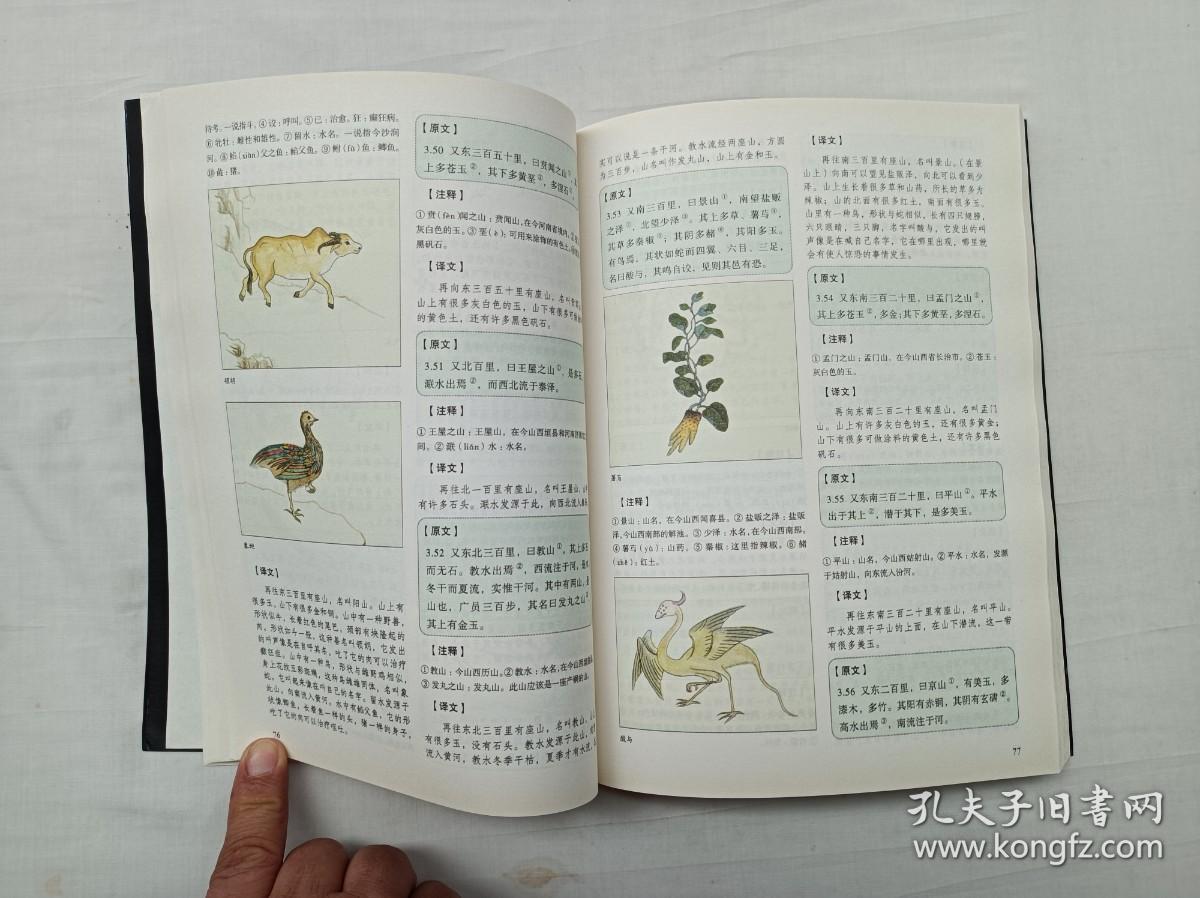 待考。一说指斗。④议：呼叫。⑤已：治愈。狂：癫狂病。
⑥牝牡：雌性和雄性。⑦留水：水名。一说指今沙涧
河。⑧䱤(xiàn)父之鱼：䱤父鱼。⑨鲋(fù)鱼：鲫鱼。
⑩彘：猪。
领胡
象蛇
【译文】
再往东三百里有座山，名叫阳山。山上有
很多玉，山下有很多金和铜。山中有一种野兽，
形状似牛，长着红色的尾巴，颈部有块隆起的
肉，形状如斗一般，这种兽名叫领胡，它发出
的叫声像是在自呼其名，吃了它的肉可以治疗
癫狂症。山中有一种鸟，形状与雌野鸡相似，
身上花纹五彩斑斓，这种鸟雌雄同体，名叫象
蛇，它叫起来像在叫自己的名字。留水发源于
此山，向南流入黄河。水中有䱤父鱼，它的形
状像鲫鱼，长着鱼一样的头，猪一样的身子，
吃了它的肉可以治疗呕吐。
76
【原文】
3.50 又东三百五十里，曰贲闻之山
上多苍玉②，其下多黄垩③，多涅石
【注释】
①贲(fén)闻之山：贲闻山，在今河南省境内。
灰白色的玉。③垩(è)：可用来涂饰的有色土。
黑矾石。
【译文】
再向东三百五十里有座山，名叫
山上有很多灰白色的玉，山下有很多可做
的黄色土，还有许多黑色矾石。
【原文】
3.51 又北百里，曰王屋之山①，是多石
㶌水出焉②，而西北流于泰泽。
【注释】
①王屋之山：王屋山，在今山西垣县和河南济源
间。②㶌(lián)水：水名。
【译文】
再往北一百里有座山，名叫王屋山，山
有许多石头。㶌水发源于此，向西北流入
【原文】
3.52 又东北三百里，曰教山①，其上多玉
而无石。教水出焉②，西流注于河，是水
冬干而夏流，实惟干河。其中有两山，是
山也，广员三百步，其名曰发丸之山③
其上有金玉。
【注释】
①教山：今山西历山。②教水：水名，在今山西垣曲
③发丸之山：发丸山。此山应该是一座产铜的山。
【译文】
再往东北三百里有座山，名叫教山，山
有很多玉，没有石头。教水发源于此山，向
流入黄河，教水冬季干枯，夏季才有水流，
实可以说是一条干河。教水流经两座山，方圆
为三百步，山名叫作发丸山，山上有金和玉。
【原文】
3.53 又南三百里，曰景山①，南望盐贩
之泽②，北望少泽③。其上多草、薯䓨④，
其草多秦椒⑤；其阴多赭⑥，其阳多玉。
有鸟焉，其状如蛇而四翼、六目、三足，
名曰酸与，其鸣自詨，见则其邑有恐。
【注释】
①景山：山名，在今山西闻喜县。②盐贩之泽：盐贩
泽，今山西南部的解池。③少泽：水名，在今山西南部。
(yù)：山药。⑤秦椒：这里指辣椒。⑥赭
(zhě)：红土。
酸与
【译文】
再往南三百里有座山，名叫景山。（在景
山上）向南可以望见盐贩泽，向北可以看到少
泽。山上生长着很多草和山药，所长的草多为
辣椒；山的北面有很多红土，南面有很多玉。
山里有一种鸟，形状与蛇相似，长有四只翅膀，
六只眼睛，三只脚，名字叫酸与，它发出的叫
声像是在喊自己名字，它在哪里出现，哪里就
会有使人惊恐的事情发生。
【原文】
3.54 又东南三百二十里，曰孟门之山①，
其上多苍玉②，多金；其下多黄垩，多涅石。
【注释】
①孟门之山：孟门山，在今山西省长治市。②苍玉：
灰白色的玉。
【译文】
再向东南三百二十里有座山，名叫孟门
山。山上有许多灰白色的玉，还有很多黄金；
山下有很多可做涂料的黄色土，还有许多黑色
矾石。
【原文】
3.55 又东南三百二十里，曰平山①。平水
出于其上②，潜于其下，是多美玉。
【注释】
①平山：山名，今山西姑射山。②平水：水名，发源
于姑射山，向东流入汾河。
【译文】
再往东南三百二十里有座山，名叫平山。
平水发源于平山的上面，在山下潜流，这一带
有很多美玉。
【原文】
3.56 又东二百里，曰京山①，有美玉，多
漆木，多竹。其阳有赤铜，其阴有玄䃤②。
高水出焉③，南流注于河。
77
孔夫子旧书网
www.kongfz.com